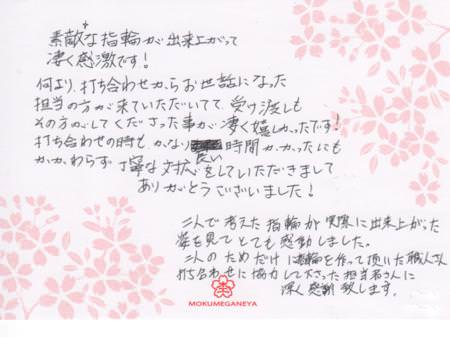 素敵な指輪が出来上がって
凄く感激です!
何より、打ち合わせからお世話になった
担当の方が来ていただいてて、受け渡しも
その方がしてくださった事が凄く嬉しかったです!
打ち合わせの時も、かなり長い時間かかったにも
かかわらず丁寧な対応をしていただきまして
ありがとうございました!
二人で考えた指輪が実際に出来上がった
姿を見てとても感動しました。
二人のためだけに指輪を作って頂いた職人さん
打ち合わせに協力して下さった担当者さんに
深く感謝致します。
MOKUMEGANEYA